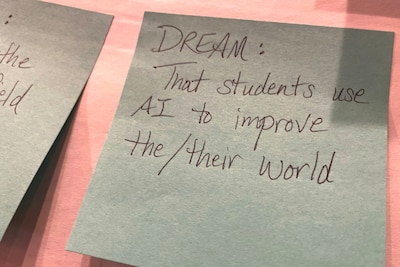 :
the
DREAM:
That students use
AI to improve
the/their world